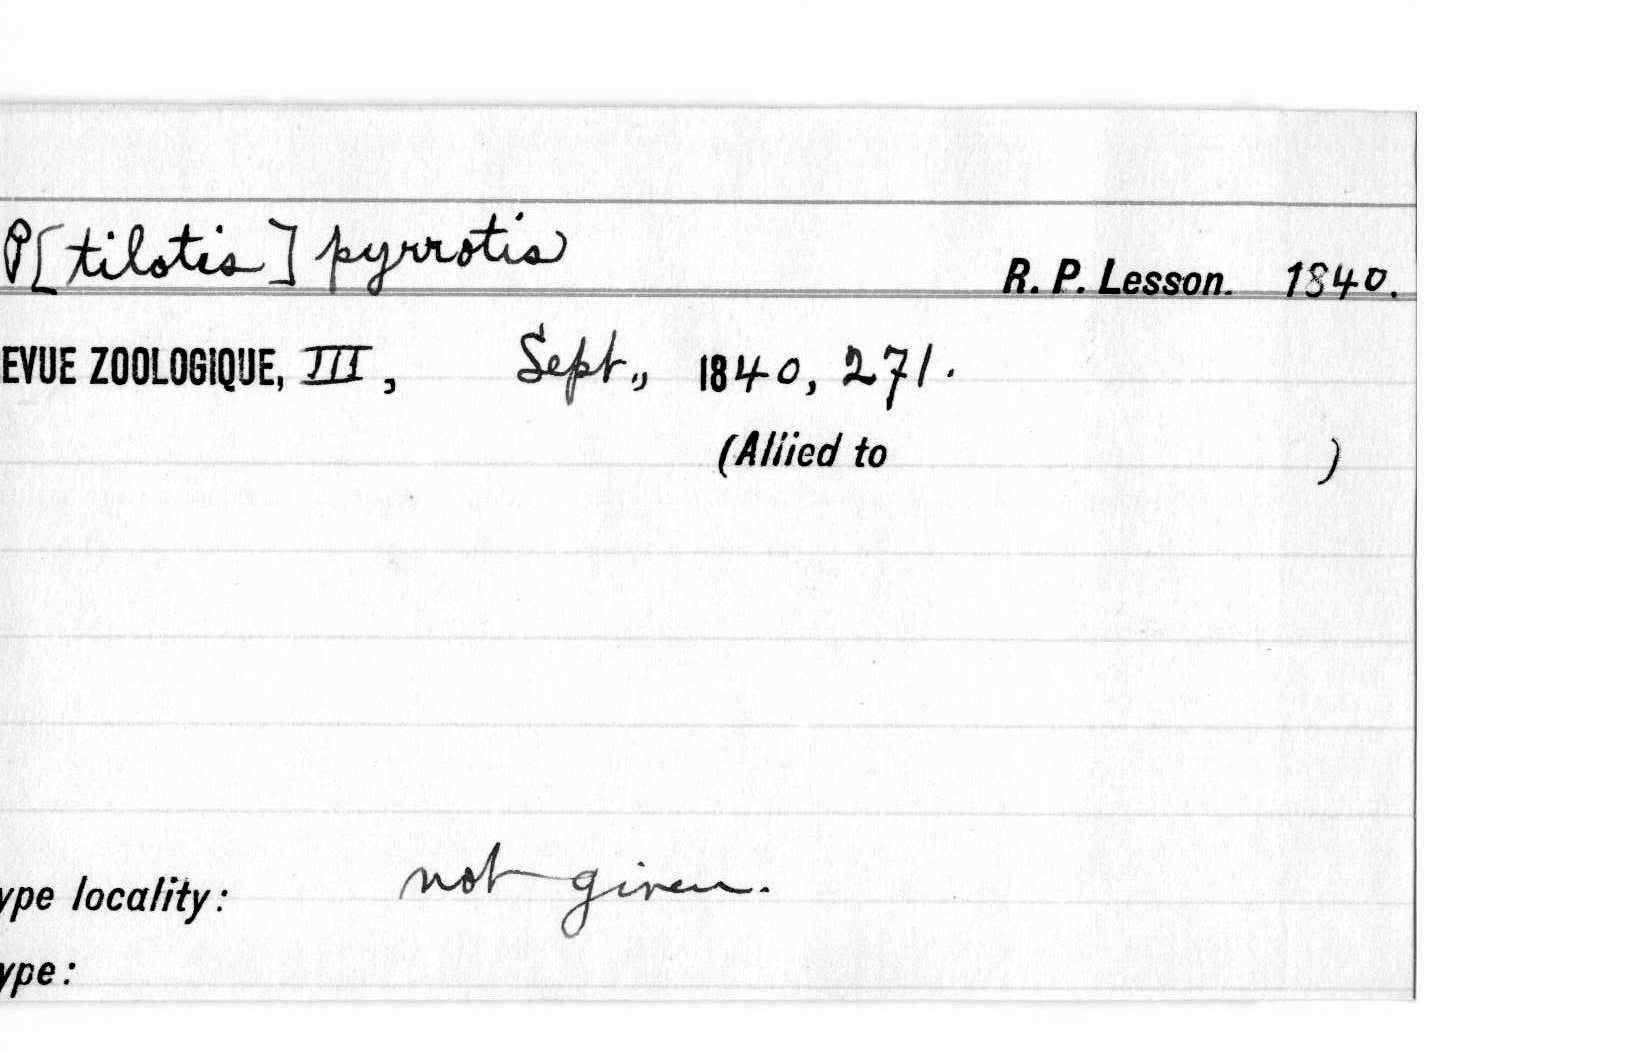 P[tilotis] pyrrotis R. P. Lesson. 1840.
EVUE ZOOLOGIQUE, III, Sept., 1840, 271.
(Allied to )
ype locality: not given.
ype: